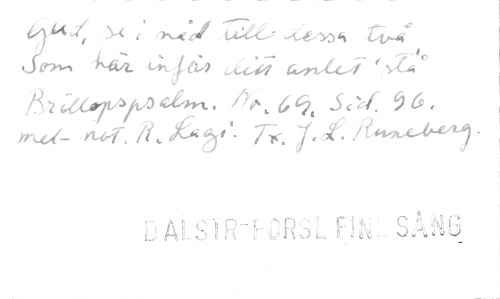 Gud, se i nåd till dessa två
Som här inför ditt anlet' stå
Bröllopspsalm. No. 69. Sid. 96.
mel- not. R. Lagi. Tx. J. L. Runeberg.
DALSTR-FORSL FINL SÅNG